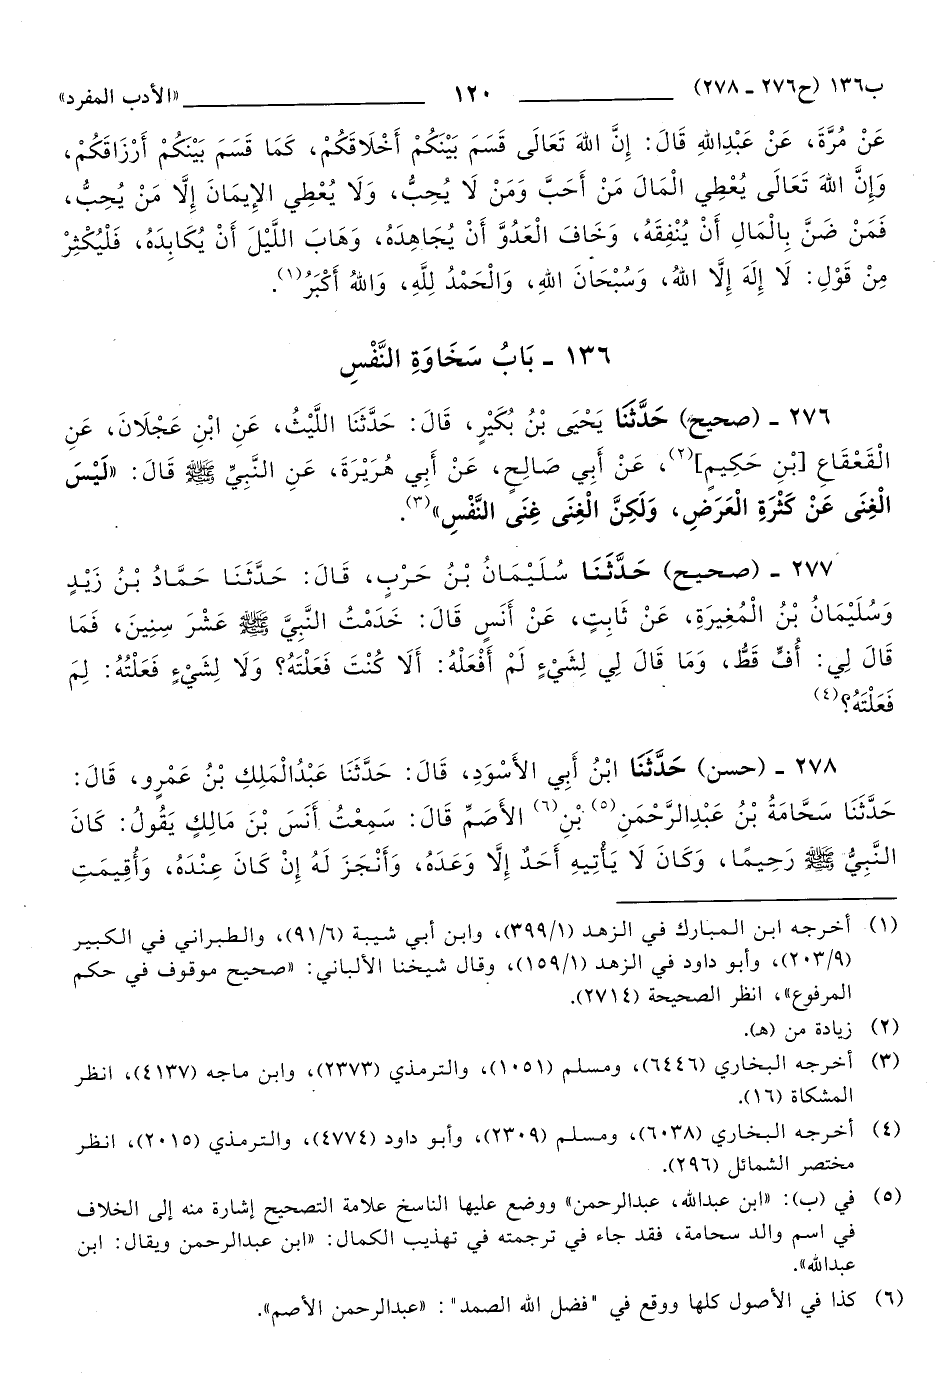 ب١٣٦ (ح٢٧٦ ـ ٢٧٨) ١٢٠ «الأدب المفرد»
عَنْ مُرَّةَ، عَنْ عَبْدِاللهِ قَالَ: إِنَّ اللهَ تَعَالَى قَسَمَ بَيْنَكُمْ أَخْلَاقَكُمْ، كَمَا قَسَمَ بَيْنَكُمْ أَرْزَاقَكُمْ،
وَإِنَّ اللهَ تَعَالَى يُعْطِي الْمَالَ مَنْ أَحَبَّ وَمَنْ لَا يُحِبُّ، وَلَا يُعْطِي الإِيمَانَ إِلَّا مَنْ يُحِبُّ،
فَمَنْ ضَنَّ بِالْمَالِ أَنْ يُنْفِقَهُ، وَخَافَ الْعَدُوَّ أَنْ يُجَاهِدَهُ، وَهَابَ اللَّيْلَ أَنْ يُكَابِدَهُ، فَلْيُكْثِرْ
مِنْ قَوْلِ: لَا إِلَهَ إِلَّا اللهُ، وَسُبْحَانَ اللهِ، وَالْحَمْدُ لِلَّهِ، وَاللهُ أَكْبَرُ(١).
١٣٦ ـ بَابُ سَخَاوَةِ النَّفْسِ
٢٧٦ ـ (صحيح) حَدَّثَنَا يَحْيَى بْنُ بُكَيْرٍ، قَالَ: حَدَّثَنَا اللَّيْثُ، عَنِ ابْنِ عَجْلَانَ، عَنِ
الْقَعْقَاعِ [بْنِ حَكِيمٍ](٢)، عَنْ أَبِي صَالِحٍ، عَنْ أَبِي هُرَيْرَةَ، عَنِ النَّبِيِّ ﷺ قَالَ: «لَيْسَ
الْغِنَى عَنْ كَثْرَةِ الْعَرَضِ، وَلَكِنَّ الْغِنَى غِنَى النَّفْسِ»(٣).
٢٧٧ ـ (صحيح) حَدَّثَنَا سُلَيْمَانُ بْنُ حَرْبٍ، قَالَ: حَدَّثَنَا حَمَّادُ بْنُ زَيْدٍ
وَسُلَيْمَانُ بْنُ الْمُغِيرَةِ، عَنْ ثَابِتٍ، عَنْ أَنَسٍ قَالَ: خَدَمْتُ النَّبِيَّ ﷺ عَشْرَ سِنِينَ، فَمَا
قَالَ لِي: أُفٍّ قَطُّ، وَمَا قَالَ لِي لِشَيْءٍ لَمْ أَفْعَلْهُ: أَلَا كُنْتَ فَعَلْتَهُ؟ وَلَا لِشَيْءٍ فَعَلْتُهُ: لِمَ
فَعَلْتَهُ؟(٤)
٢٧٨ ـ (حسن) حَدَّثَنَا ابْنُ أَبِي الأَسْوَدِ، قَالَ: حَدَّثَنَا عَبْدُالْمَلِكِ بْنُ عَمْرٍو، قَالَ:
حَدَّثَنَا سَحَّامَةُ بْنُ عَبْدِالرَّحْمَنِ(٥) بْنِ(٦) الأَصَمِّ قَالَ: سَمِعْتُ أَنَسَ بْنَ مَالِكٍ يَقُولُ: كَانَ
النَّبِيُّ ﷺ رَحِيمًا، وَكَانَ لَا يَأْتِيهِ أَحَدٌ إِلَّا وَعَدَهُ، وَأَنْجَزَ لَهُ إِنْ كَانَ عِنْدَهُ، وَأُقِيمَتِ
(١) أخرجه ابن المبارك في الزهد (٣٩٩/١)، وابن أبي شيبة (٩١/٦)، والطبراني في الكبير
(٢٠٣/٩)، وأبو داود في الزهد (١٥٩/١)، وقال شيخنا الألباني: «صحيح موقوف في حكم
المرفوع»، انظر الصحيحة (٢٧١٤).
(٢) زيادة من (هـ).
(٣) أخرجه البخاري (٦٤٤٦)، ومسلم (١٠٥١)، والترمذي (٢٣٧٣)، وابن ماجه (٤١٣٧)، انظر
المشكاة (١٦).
(٤) أخرجه البخاري (٦٠٣٨)، ومسلم (٢٣٠٩)، وأبو داود (٤٧٧٤)، والترمذي (٢٠١٥)، انظر
مختصر الشمائل (٢٩٦).
(٥) في (ب): «ابن عبدالله، عبدالرحمن» ووضع عليها الناسخ علامة التصحيح إشارة منه إلى الخلاف
في اسم والد سحامة، فقد جاء في ترجمته في تهذيب الكمال: «ابن عبدالرحمن ويقال: ابن
عبدالله».
(٦) كذا في الأصول كلها ووقع في "فضل الله الصمد": «عبدالرحمن الأصم».